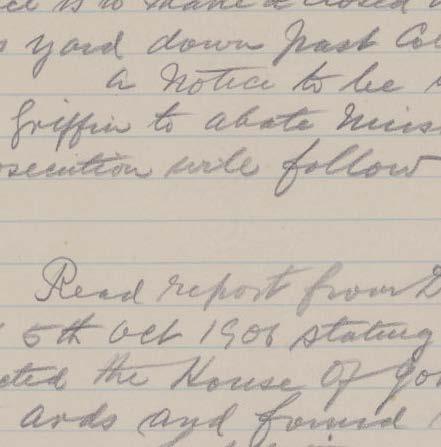 is to make a closed
yard down past Co
a Notice to be
Griffin to abate Nuis
osecution will follow
Read report from D
5th Oct 1906 stating
cted the House of Jo
ards and found